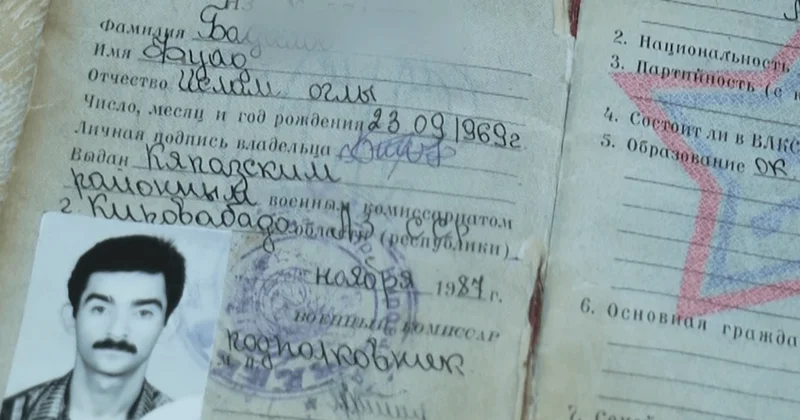 Фамилия
Имя Фуад
Отчество Ислам оглы
Число, месяц и год рождения 23 09 1969 г
Личная подпись владельца
Выдан Кяпазским
районным военным комиссариатом
г. Кировабад области (республики)
ноября 1987 г.
ВОЕННЫЙ КОМИССАР
подполковник
М. П.
2. Национальность
3. Партийность (с к
4. Состоит ли в ВЛКС
5. Образование
6. Основная гражда
7.